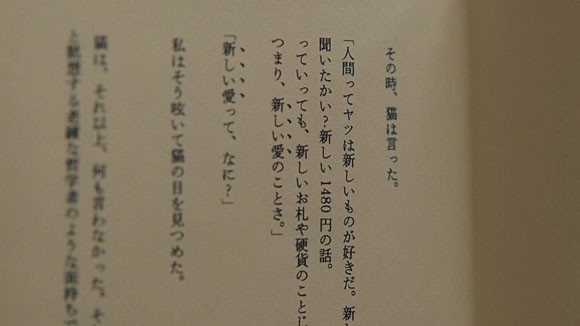 その時、猫は言った。
「人間ってヤツは新しいものが好きだ。新し
聞いたかい?新しい1480円の話。
っていっても、新しいお札や硬貨のことじ
つまり、新しい愛のことさ。」
「新しい愛って、なに?」
私はそう呟いて猫の目を見つめた。
猫は、それ以上、何も言わなかった。そ
と瞑想する老練な哲学者のような面持ちで